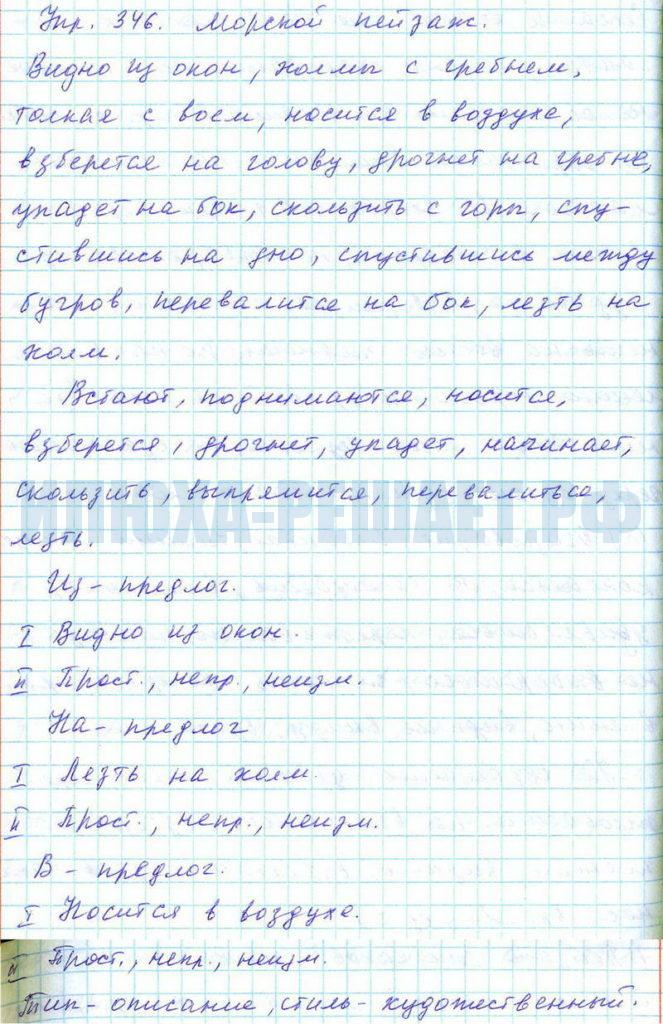 Упр. 346. Морской пейзаж.
Видно из окон, холмы с гребнем,
толкая с воем, носится в воздухе,
взберется на голову, дрогнет на гребне,
упадет на бок, скользить с горы, спу-
стившись на дно, спустившись между
бугров, перевалится на бок, лезть на
холм.
Встают, поднимаются, носится,
взберется, дрогнет, упадет, начинает,
скользить, выпрямится, перевалиться,
лезть.
ИЛЮХА-РЕШАЕТ.РФ
Из - предлог.
I Видно из окон.
II Прост., непр., неизм.
На - предлог
I Лезть на холм.
II Прост., непр., неизм.
В - предлог.
I Носится в воздухе.
II Прост., непр., неизм.
Тип - описание, стиль - художественный.